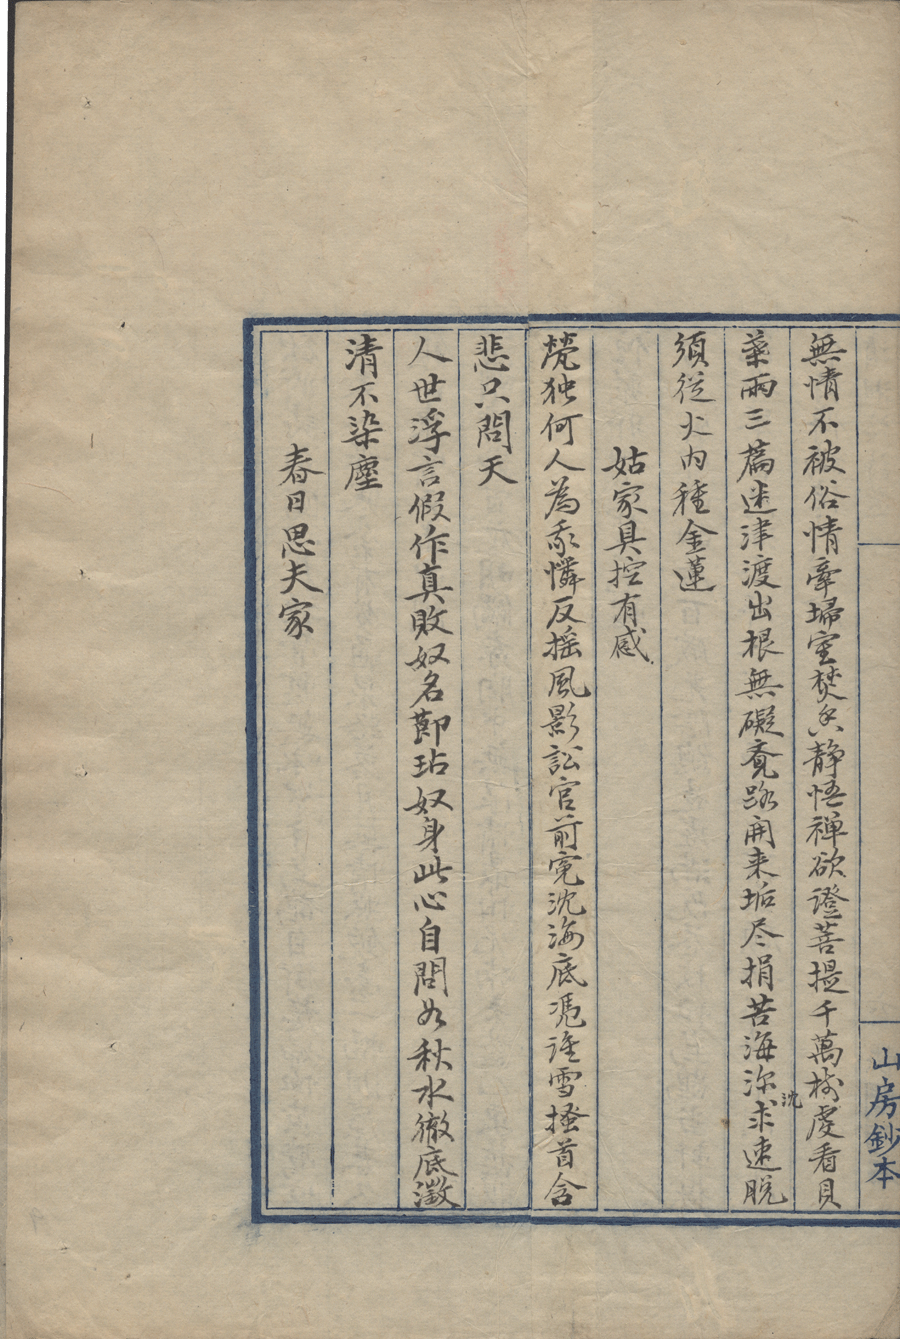 無情不被俗情牽埽室焚香静悟禅欲證菩提千萬樹虔看貝
葉兩三篇迷津渡出根無礙覺路開来垢尽捐苦海深沈求速脱
須從火内種金蓮
姑家具控有感
煢独何人為我憐反摇風影訟官前寃沈海底凴誰雪搔首含
悲只問天
人世浮言假作真敗奴名節玷奴身此心自問如秋水徹底澂
清不染塵
春日思夫家
山房鈔本